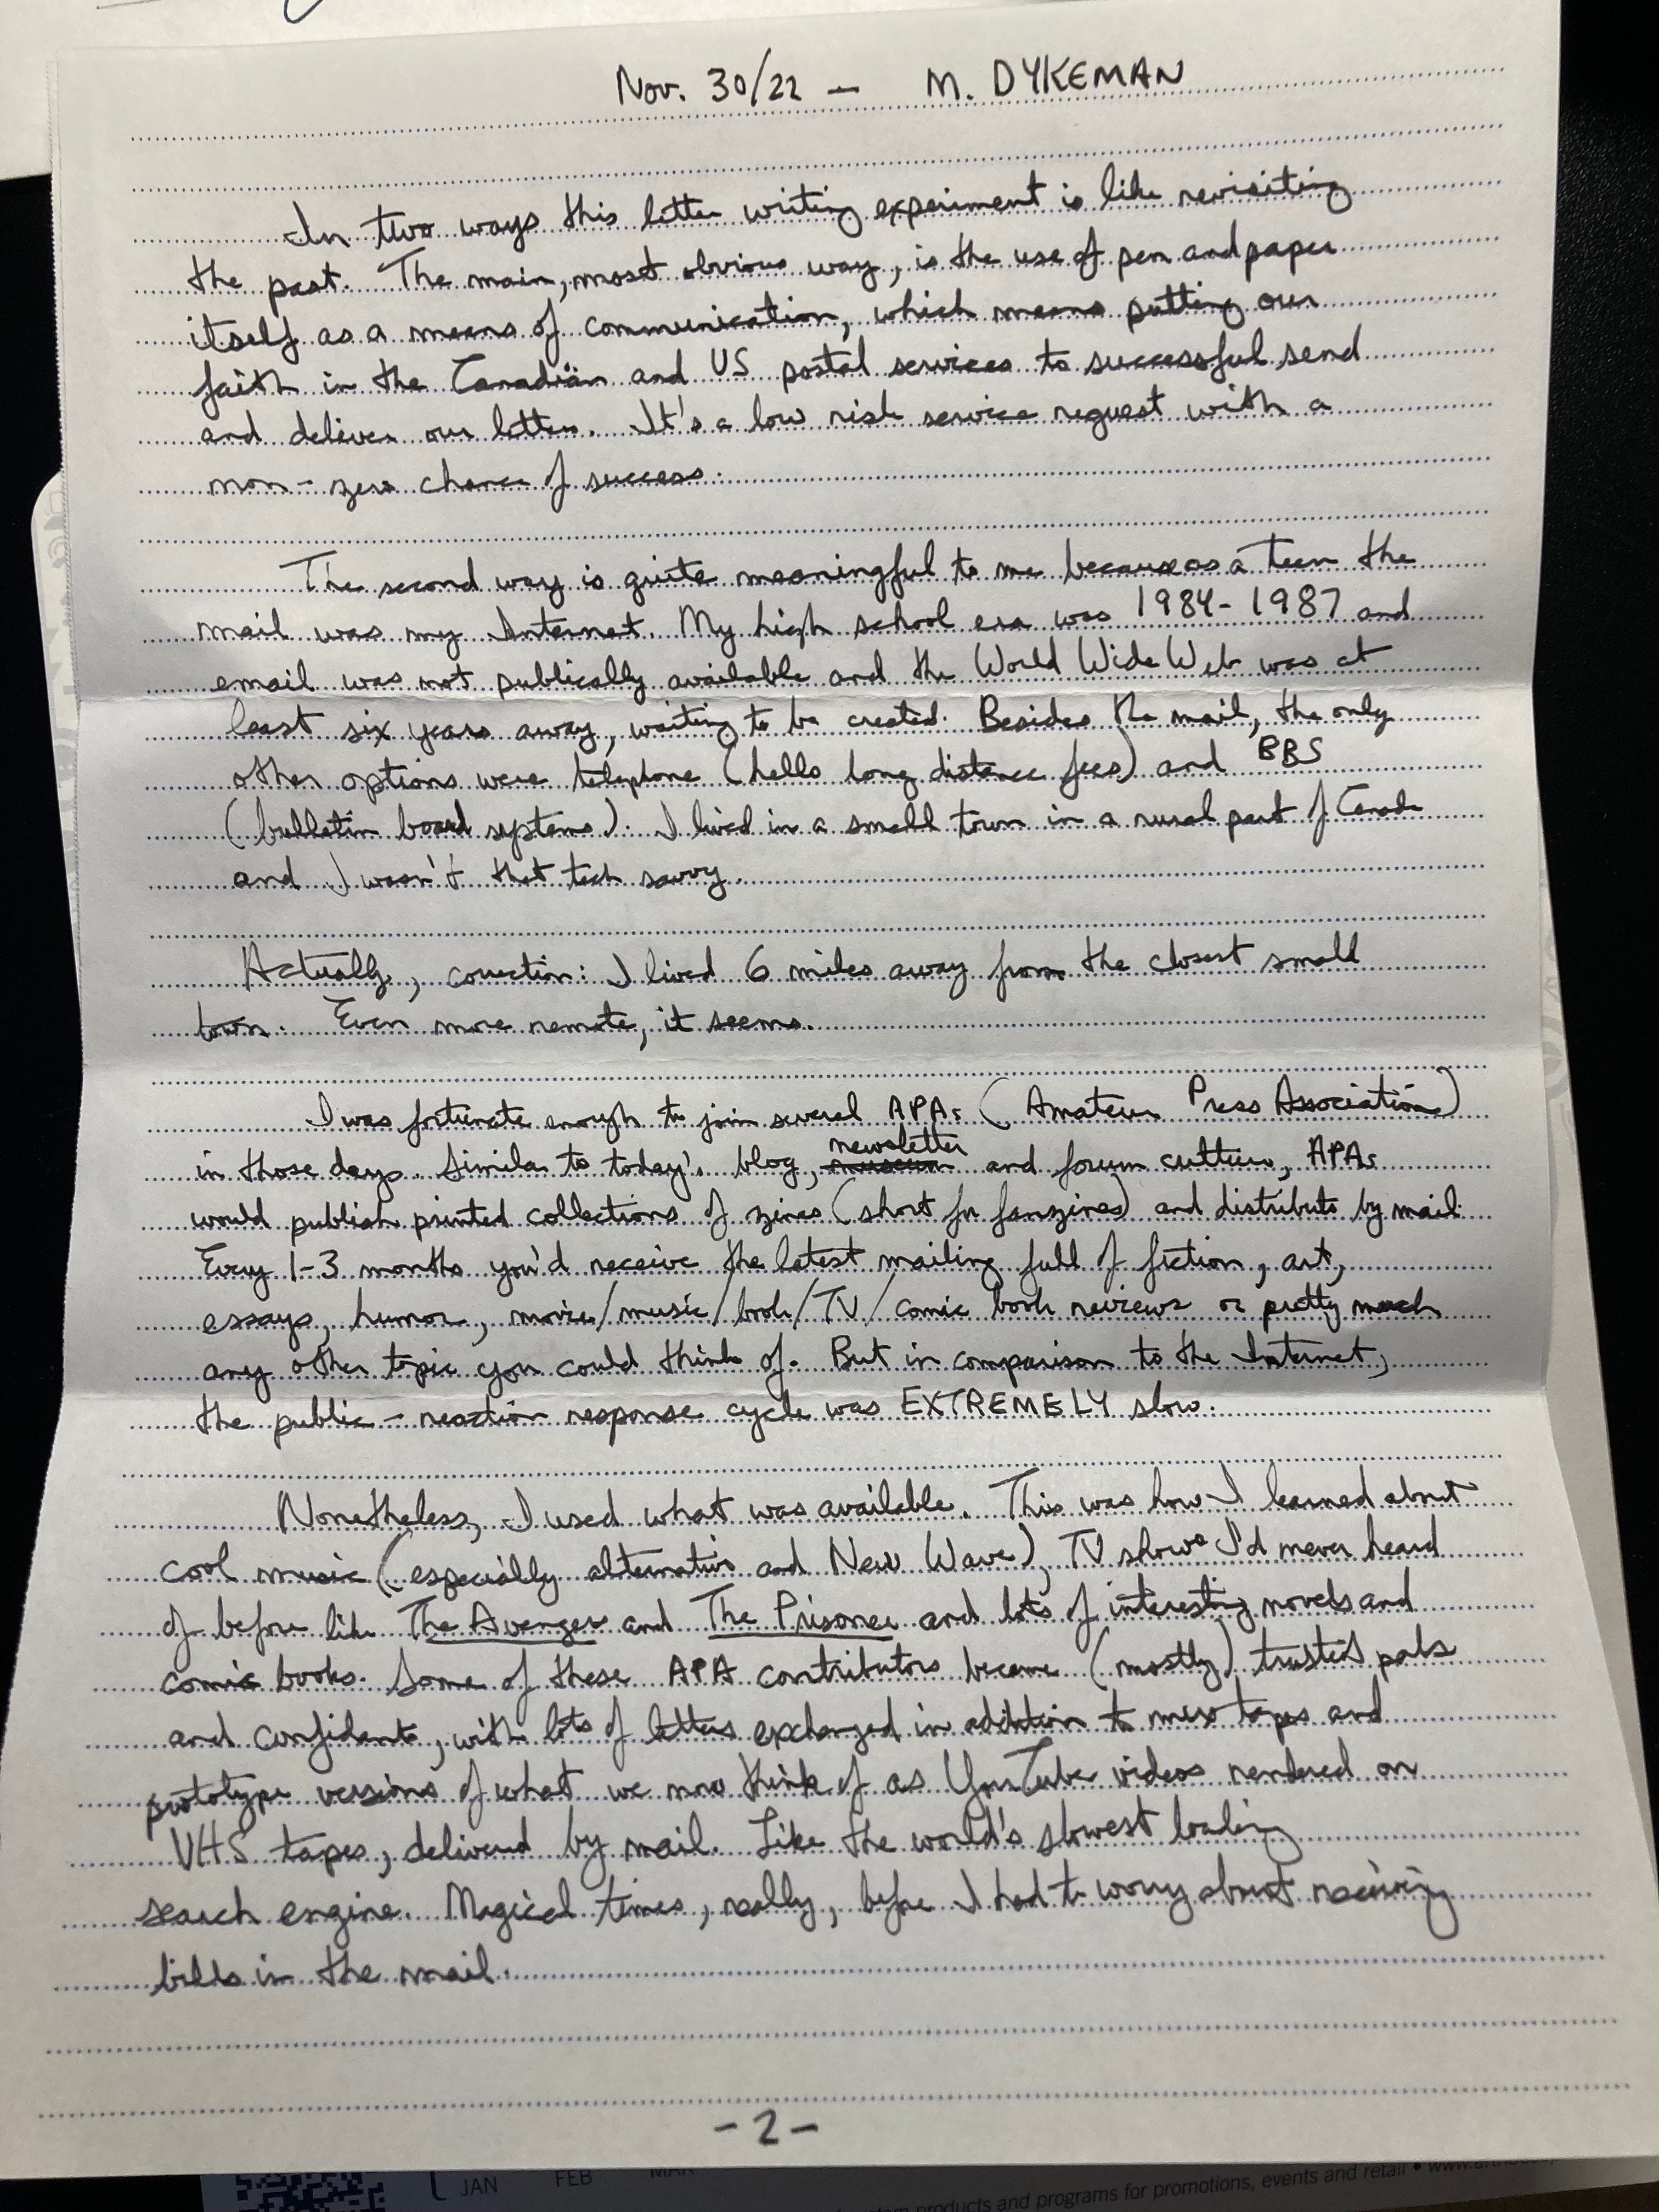 Nov. 30/22 — M. DYKEMAN
In two ways this letter writing experiment is like revisiting
the past. The main, most obvious way, is the use of pen and paper
itself as a means of communication, which means putting our
faith in the Canadian and US postal services to successful send
and deliver our letters. It's a low risk service request with a
non-zero chance of success.
The second way is quite meaningful to me because as a teen the
mail was my Internet. My high school era was 1984-1987 and
email was not publically available and the World Wide Web was at
least six years away, waiting to be created. Besides the mail, the only
other options were telephone (hello long distance fees) and BBS
(bulletin board systems). I lived in a small town in a rural part of Canada
and I wasn't that tech savvy.
Actually, correction: I lived 6 miles away from the closest small
town. Even more remote, it seems.
I was fortunate enough to join several APAs (Amateur Press Association)
in those days. Similar to today's blog, newsletter and forum culture, APAs
would publish printed collections of zines (short for fanzines) and distribute by mail.
Every 1-3 months you'd receive the latest mailing full of fiction, art,
essays, humor, movie/music/book/TV/comic book reviews or pretty much
any other topic you could think of. But in comparison to the Internet,
the public-reaction response cycle was EXTREMELY slow.
Nonetheless, I used what was available. This was how I learned about
cool music (especially alternative and New Wave), TV shows I'd never heard
of before like The Avengers and The Prisoner and lots of interesting novels and
comic books. Some of these APA contributors became (mostly) trusted pals
and confidants, with lots of letters exchanged in addition to mix tapes and
prototype versions of what we now think of as YouTube videos rendered on
VHS tapes, delivered by mail. Like the world's slowest loading
search engine. Magical times, really, before I had to worry about receiving
bills in the mail.
-2-
JAN FEB
products and programs for promotions, events and retail •